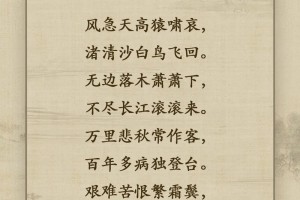 风急天高猿啸哀，
渚清沙白鸟飞回。
无边落木萧萧下，
不尽长江滚滚来。
万里悲秋常作客，
百年多病独登台。
艰难苦恨繁霜鬓，